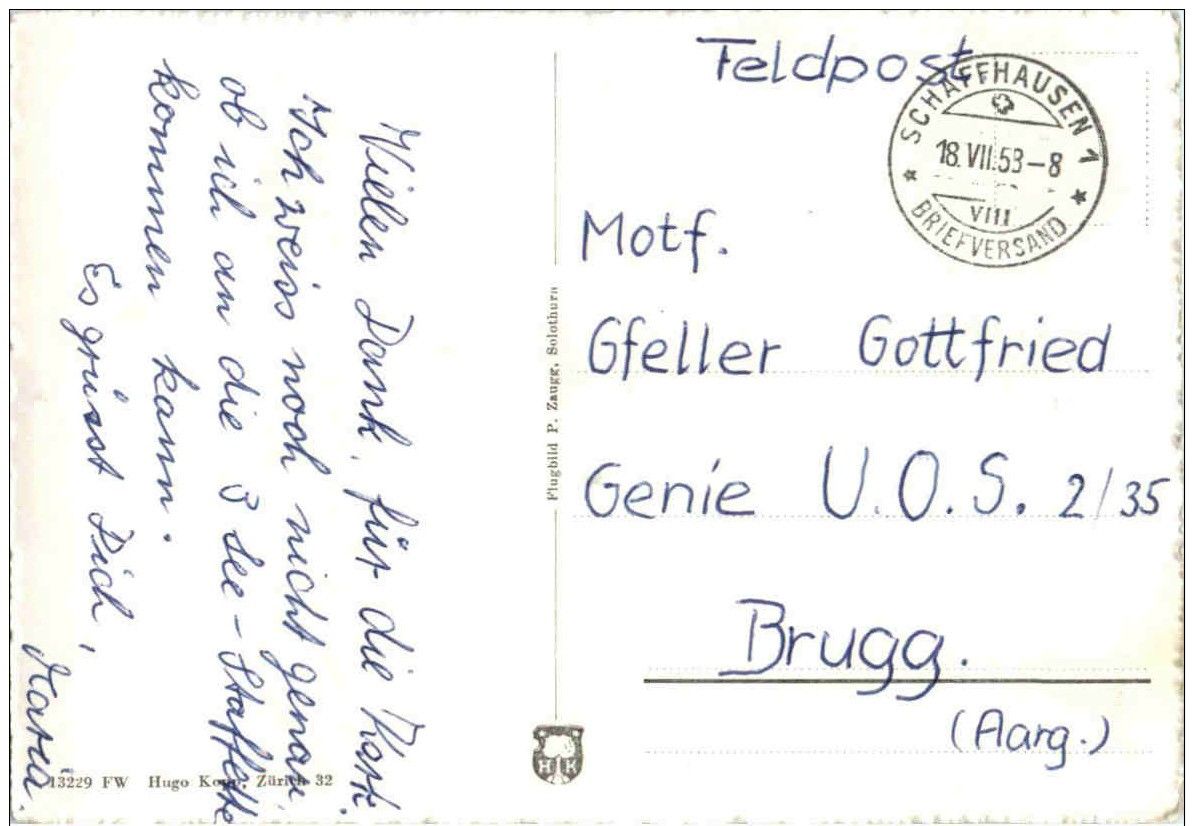 Vielen Dank, für die Karte.
Ich weiss noch nicht genau,
ob ich an die 3 See-Staffette
kommen kann.
Es grüsst Dich,
Maria.
13229 FW Hugo Kopp, Zürich 32
Flugbild P. Zaugg, Solothurn
HK
Feldpost
SCHAFFHAUSEN 1
18.VII.53-8
VIII
BRIEFVERSAND
Motf.
Gfeller Gottfried
Genie U.O.S. 2/35
Brugg.
(Aarg.)